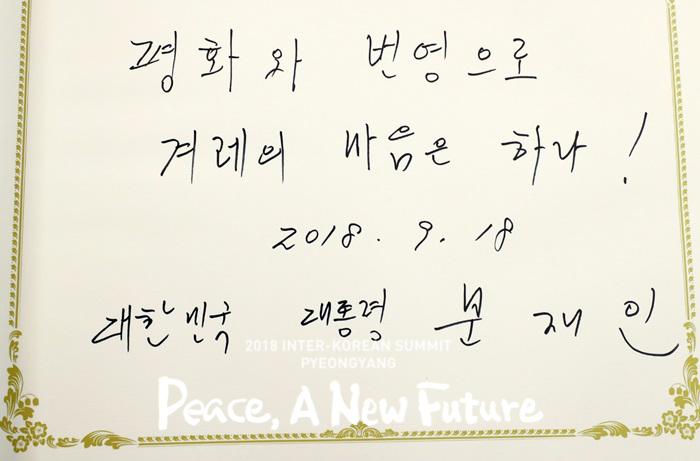 평화와 번영으로
겨레의 마음은 하나!
2018. 9. 18
대한민국 대통령 문재인
2018 INTER-KOREAN SUMMIT
PYEONGYANG
Peace, A New Future